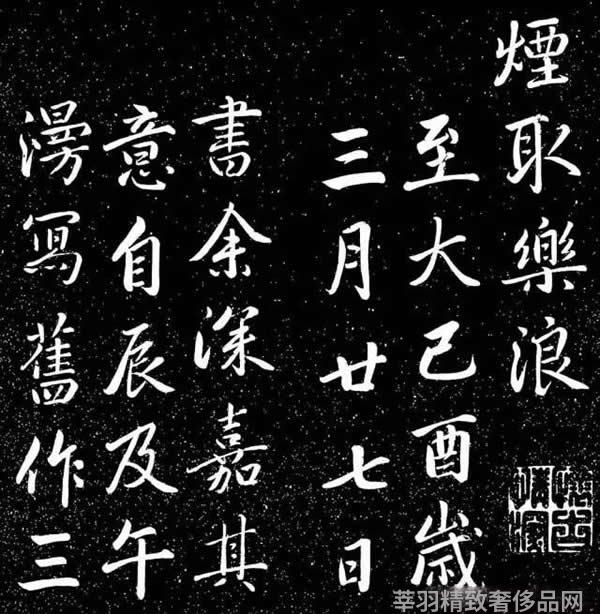 煙取樂浪
至大己酉歲
三月廿七日
書余深嘉其
意自辰及午
漫寫舊作三
莘羽精致奢侈品网